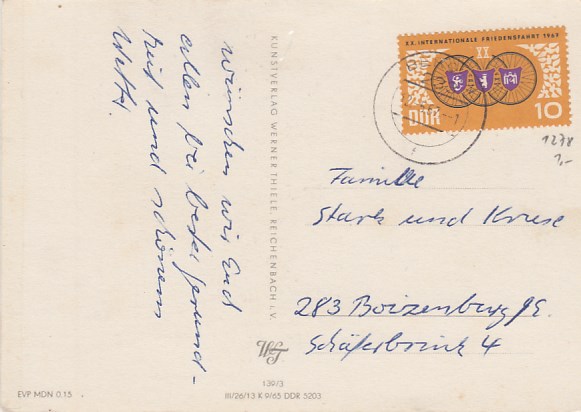 wünschen wir Euch
allen bei bester Gesund-
heit und schönem
Wetter.
KUNSTVERLAG WERNER THIELE REICHENBACH i.V.
XX. INTERNATIONALE FRIEDENSFAHRT 1967
XX
DDR
10
1278
1,-
Familie
Stark und Kruse
283 Boizenburg/E.
Schäferbrink 4
139/3
III/26/13 K 9/65 DDR 5203
EVP MDN 0.15